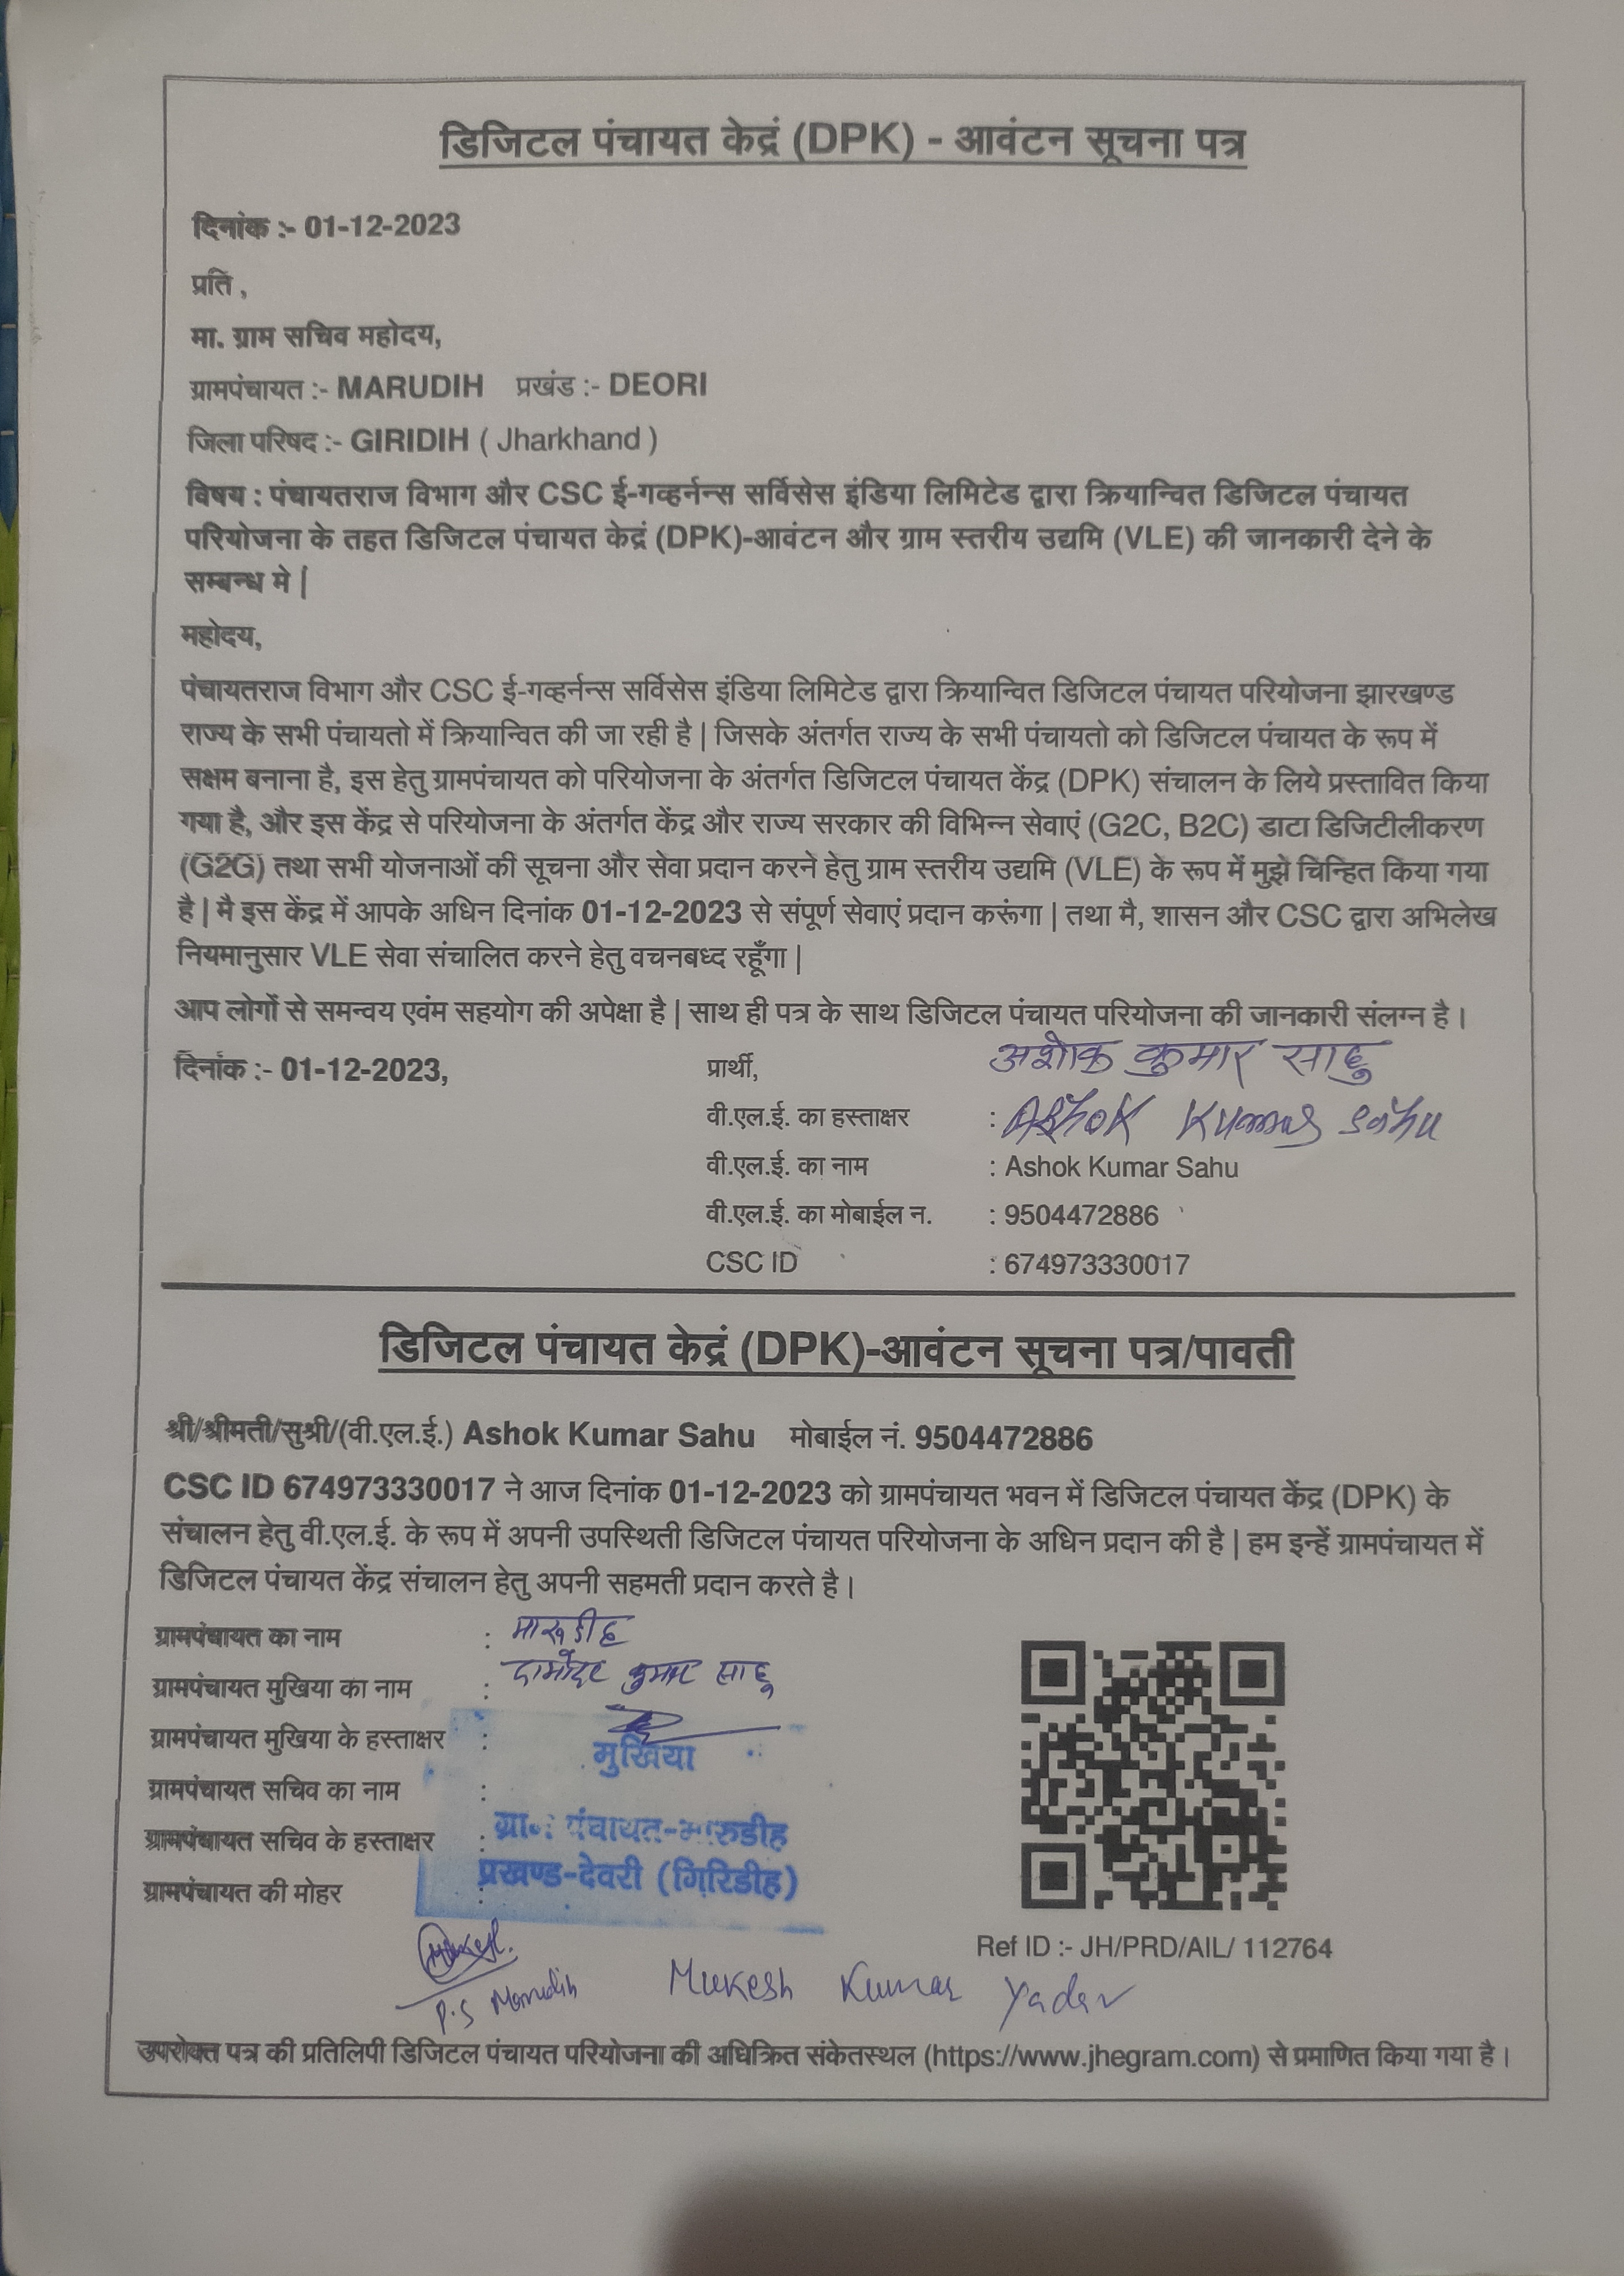 डिजिटल पंचायत केद्रं (DPK) - आवंटन सूचना पत्र
दिनांक :- 01-12-2023
प्रति ,
मा. ग्राम सचिव महोदय,
ग्रामपंचायत :- MARUDIH प्रखंड :- DEORI
जिला परिषद :- GIRIDIH ( Jharkhand )
विषय : पंचायतराज विभाग और CSC ई-गव्हर्नन्स सर्विसेस इंडिया लिमिटेड द्वारा क्रियान्वित डिजिटल पंचायत
परियोजना के तहत डिजिटल पंचायत केद्रं (DPK)-आवंटन और ग्राम स्तरीय उद्यमि (VLE) की जानकारी देने के
सम्बन्ध मे |
महोदय,
पंचायतराज विभाग और CSC ई-गव्हर्नन्स सर्विसेस इंडिया लिमिटेड द्वारा क्रियान्वित डिजिटल पंचायत परियोजना झारखण्ड
राज्य के सभी पंचायतो में क्रियान्वित की जा रही है | जिसके अंतर्गत राज्य के सभी पंचायतो को डिजिटल पंचायत के रूप में
सक्षम बनाना है, इस हेतु ग्रामपंचायत को परियोजना के अंतर्गत डिजिटल पंचायत केंद्र (DPK) संचालन के लिये प्रस्तावित किया
गया है, और इस केंद्र से परियोजना के अंतर्गत केंद्र और राज्य सरकार की विभिन्न सेवाएं (G2C, B2C) डाटा डिजिटीलीकरण
(G2G) तथा सभी योजनाओं की सूचना और सेवा प्रदान करने हेतु ग्राम स्तरीय उद्यमि (VLE) के रूप में मुझे चिन्हित किया गया
है | मै इस केंद्र में आपके अधिन दिनांक 01-12-2023 से संपूर्ण सेवाएं प्रदान करूंगा | तथा मै, शासन और CSC द्वारा अभिलेख
नियमानुसार VLE सेवा संचालित करने हेतु वचनबध्द रहूँगा |
आप लोगों से समन्वय एवंम सहयोग की अपेक्षा है | साथ ही पत्र के साथ डिजिटल पंचायत परियोजना की जानकारी संलग्न है ।
दिनांक :- 01-12-2023, प्रार्थी, अशोक कुमार साहु
वी.एल.ई. का हस्ताक्षर : Ashok Kumar Sahu
वी.एल.ई. का नाम : Ashok Kumar Sahu
वी.एल.ई. का मोबाईल न. : 9504472886
CSC ID : 674973330017
डिजिटल पंचायत केद्रं (DPK)-आवंटन सूचना पत्र/पावती
श्री/श्रीमती/सुश्री/(वी.एल.ई.) Ashok Kumar Sahu मोबाईल नं. 9504472886
CSC ID 674973330017 ने आज दिनांक 01-12-2023 को ग्रामपंचायत भवन में डिजिटल पंचायत केंद्र (DPK) के
संचालन हेतु वी.एल.ई. के रूप में अपनी उपस्थिती डिजिटल पंचायत परियोजना के अधिन प्रदान की है | हम इन्हें ग्रामपंचायत में
डिजिटल पंचायत केंद्र संचालन हेतु अपनी सहमती प्रदान करते है ।
ग्रामपंचायत का नाम : मारूडीह
ग्रामपंचायत मुखिया का नाम : दामोदर कुमार साहू
ग्रामपंचायत मुखिया के हस्ताक्षर :
मुखिया
ग्रामपंचायत सचिव का नाम :
ग्रामपंचायत सचिव के हस्ताक्षर :
पंचायत-मारुडीह
प्रखण्ड-देवरी (गिरिडीह)
ग्रामपंचायत की मोहर :
Ref ID :- JH/PRD/AIL/ 112764
P.S Marudih Mukesh Kumar Yadav
उपरोक्त पत्र की प्रतिलिपी डिजिटल पंचायत परियोजना की अधिक्रित संकेतस्थल (https://www.jhegram.com) से प्रमाणित किया गया है ।